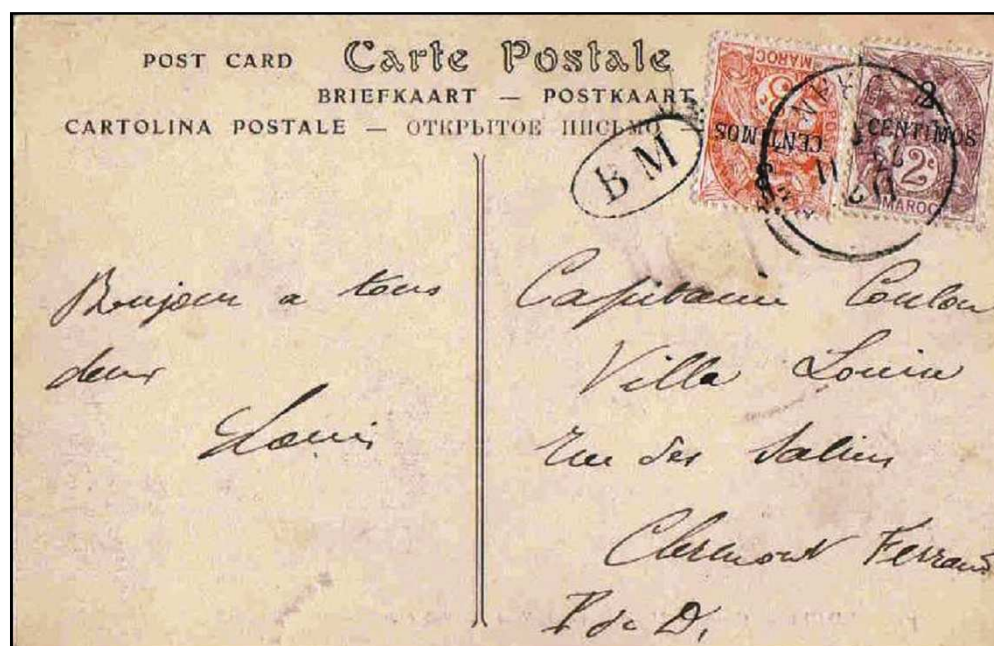 POST CARD Carte Postale
BRIEFKAART — POSTKAART
CARTOLINA POSTALE — ОТКРЫТОЕ ПИСЬМО —
B M
MAROC
3 CENTIMOS
2 CENTIMOS
2c
MAROC
11
Bonjour a tous
deux
Louis
Capitaine Coulon
Villa Louise
Rue des Salins
Clermont Ferrand
P de D.